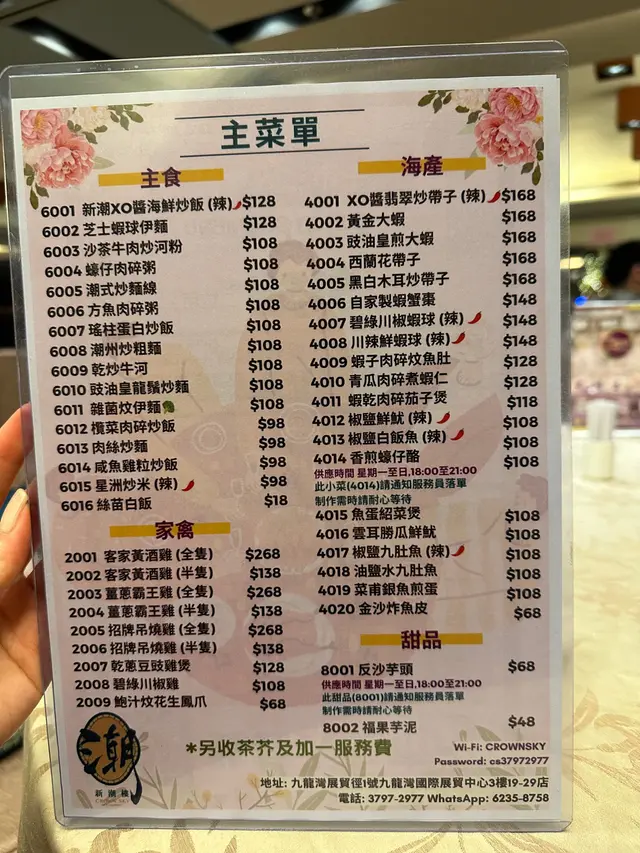 主菜單
主食
6001 新潮XO醬海鮮炒飯 (辣) $128
6002 芝士蝦球伊麵 $128
6003 沙茶牛肉炒河粉 $108
6004 蠔仔肉碎粥 $108
6005 潮式炒麵線 $108
6006 方魚肉碎粥 $108
6007 瑤柱蛋白炒飯 $108
6008 潮州炒粗麵 $108
6009 乾炒牛河 $108
6010 豉油皇龍鬚炒麵 $108
6011 雜菌炆伊麵 $108
6012 欖菜肉碎炒飯 $98
6013 肉絲炒麵 $98
6014 咸魚雞粒炒飯 $98
6015 星洲炒米 (辣) $98
6016 絲苗白飯 $18
家禽
2001 客家黃酒雞 (全隻) $268
2002 客家黃酒雞 (半隻) $138
2003 薑蔥霸王雞 (全隻) $268
2004 薑蔥霸王雞 (半隻) $138
2005 招牌吊燒雞 (全隻) $268
2006 招牌吊燒雞 (半隻) $138
2007 乾蔥豆豉雞煲 $128
2008 碧綠川椒雞 $108
2009 鮑汁炆花生鳳爪 $68
海產
4001 XO醬翡翠炒帶子 (辣) $168
4002 黃金大蝦 $168
4003 豉油皇煎大蝦 $168
4004 西蘭花帶子 $168
4005 黑白木耳炒帶子 $168
4006 自家製蝦蟹棗 $148
4007 碧綠川椒蝦球 (辣) $148
4008 川辣鮮蝦球 (辣) $148
4009 蝦子肉碎炆魚肚 $128
4010 青瓜肉碎煮蝦仁 $128
4011 蝦乾肉碎茄子煲 $118
4012 椒鹽鮮魷 (辣) $108
4013 椒鹽白飯魚 (辣) $108
4014 香煎蠔仔酪 $108
供應時間 星期一至日,18:00至21:00
此小菜(4014)請通知服務員落單
制作需時請耐心等待
4015 魚蛋紹菜煲 $108
4016 雲耳勝瓜鮮魷 $108
4017 椒鹽九肚魚 (辣) $108
4018 油鹽水九肚魚 $108
4019 菜甫銀魚煎蛋 $108
4020 金沙炸魚皮 $68
甜品
8001 反沙芋頭 $68
供應時間 星期一至日,18:00至21:00
此甜品(8001)請通知服務員落單
制作需時請耐心等待
8002 福果芋泥 $48
潮
新潮棧
*另收茶芥及加一服務費
Wi-Fi: CROWNSKY
Password: cs37972977
地址: 九龍灣展貿徑1號九龍灣國際展貿中心3樓19-29店
電話: 3797-2977 WhatsApp: 6235-8758